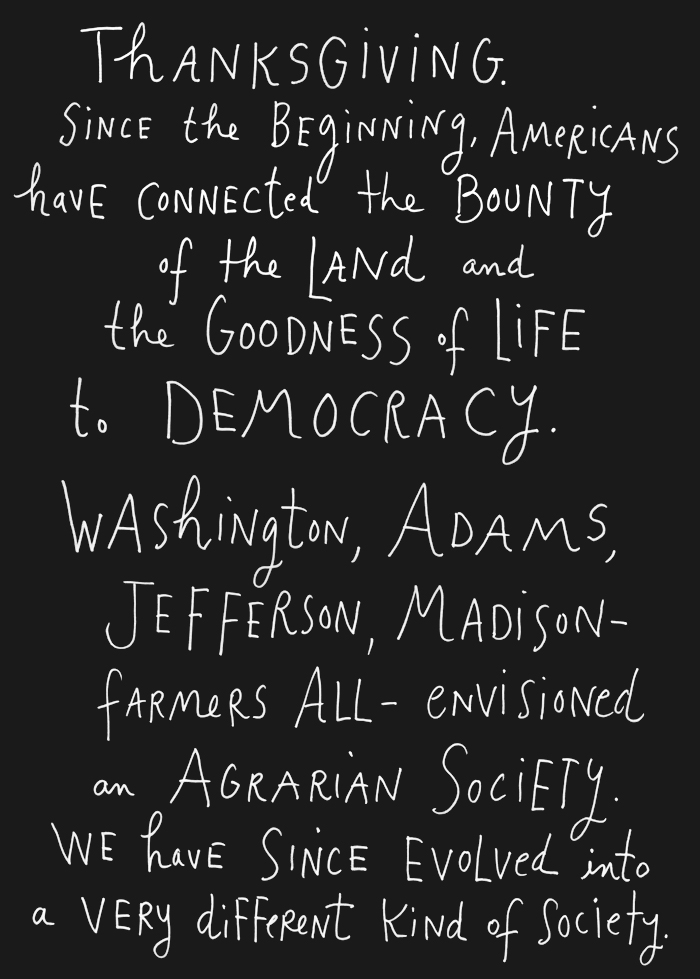 THANKSGIVING.
SINCE the BEgiNNiNg, AMeRiCANS
havE CONNECted the BOUNTY
of the LANd and
the GOODNESS of LiFE
to DEMOCRACY.
WAShiNgtoN, ADAMS,
JEFFERSON, MADiSON-
fARMeRS ALL- eNViSioNed
an AGRARiAN SociETY.
WE havE SiNCE EVOLVed into
a VERy diFFeReNt KiNd of Society.